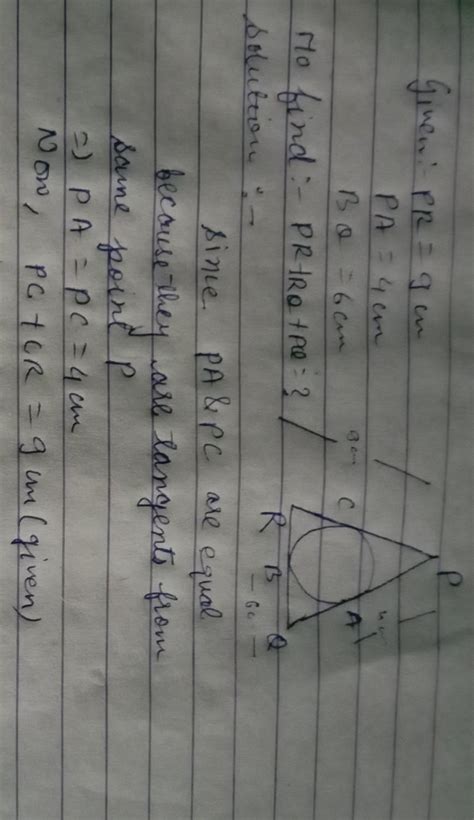 Given:- PR = 9 cm
PA = 4 cm
BQ = 6 cm
To find :- PR + RQ + PQ = ?
Solution :-
Since PA & PC are equal
because they are tangents from
same point P
=) PA = PC = 4 cm
Now, PC + CR = 9 cm (given)
P
4cm
A
9cm
C
R B Q
- 6c -